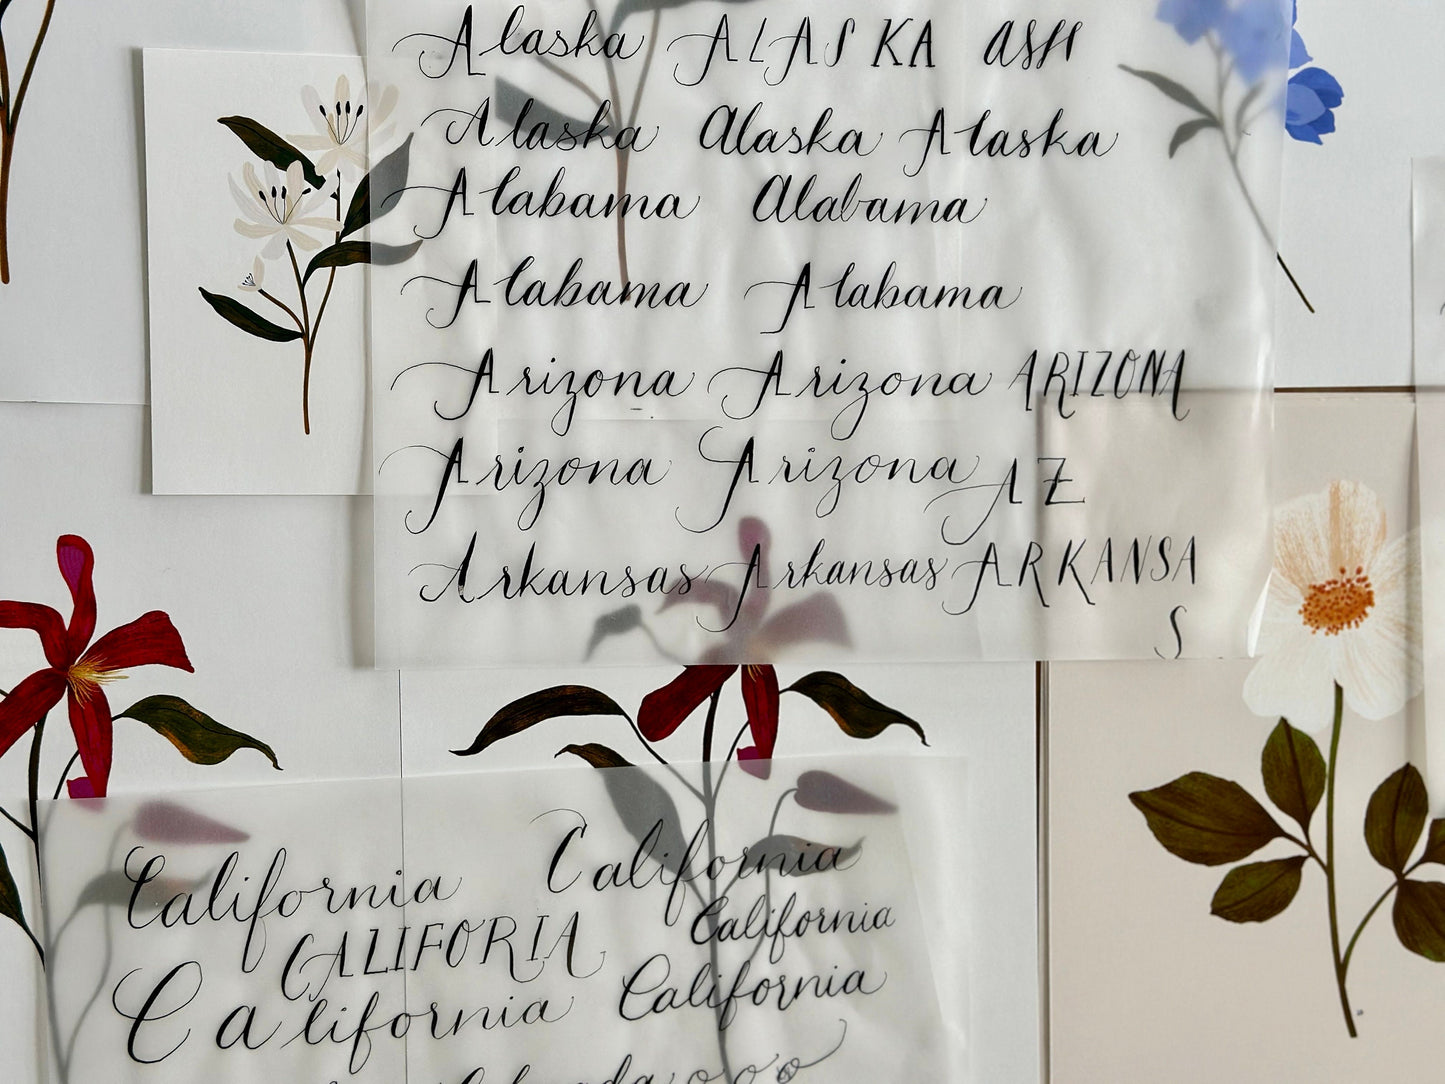 Alaska ALASKA ASH
Alaska Alaska Alaska
Alabama Alabama
Alabama Alabama
Arizona Arizona ARIZONA
Arizona Arizona AZ
Arkansas Arkansas ARKANSA
S
California California
CALIFORIA California
California California